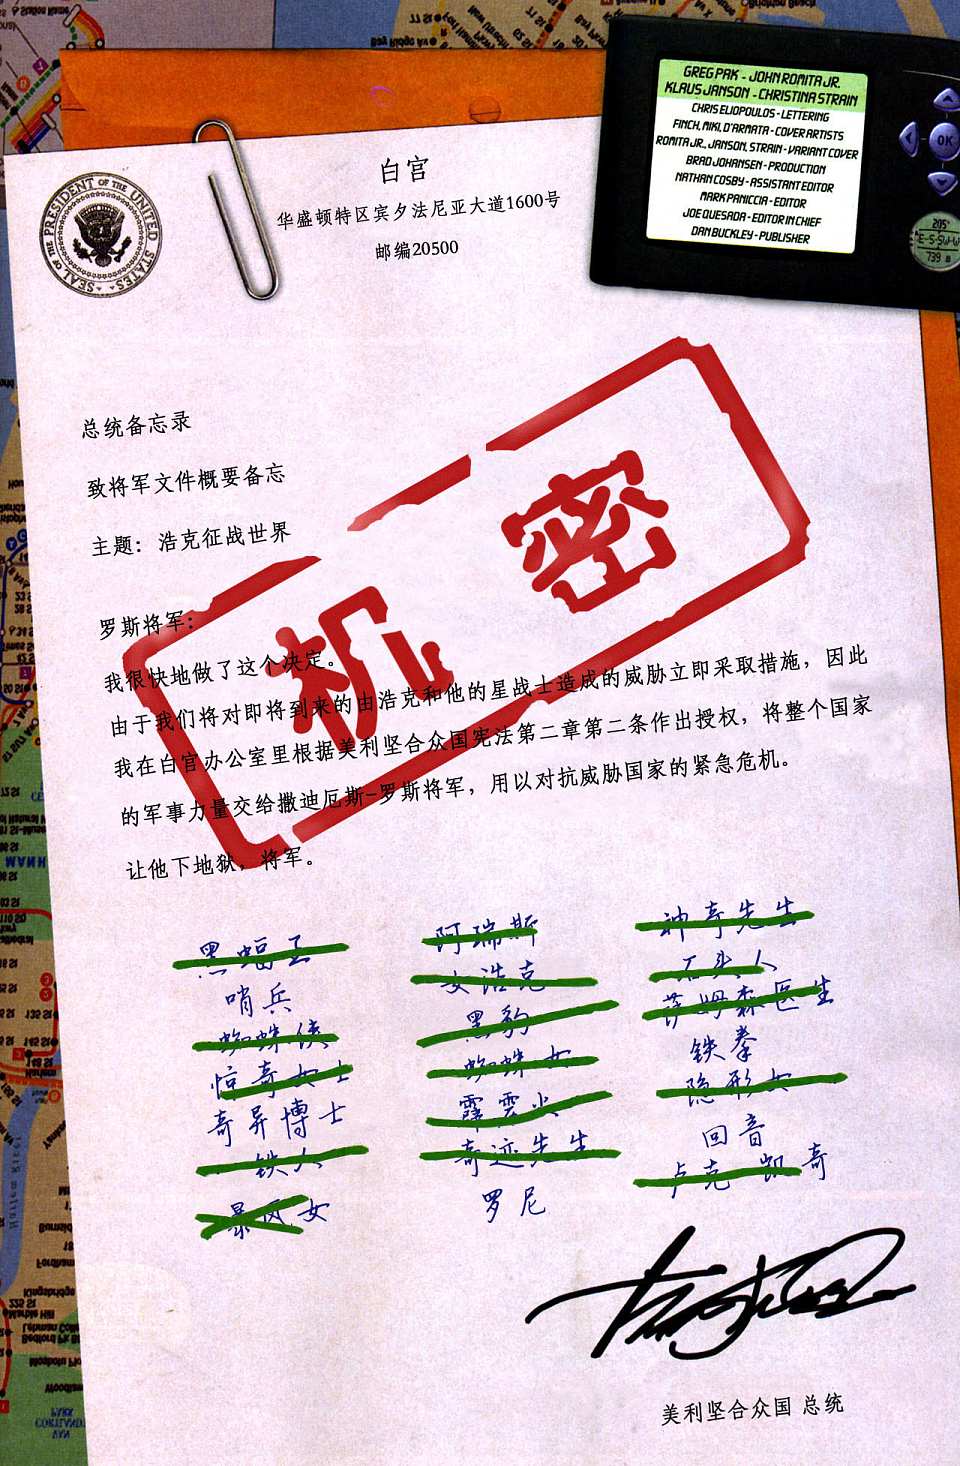 GREG PAK - JOHN ROMITA JR.
KLAUS JANSON - CHRISTINA STRAIN
CHRIS ELIOPOULOS - LETTERING
FINCH, MIKI, D'ARMATA - COVER ARTISTS
ROMITA JR., JANSON, STRAIN - VARIANT COVER
BRAD JOHANSEN - PRODUCTION
NATHAN COSBY - ASSISTANT EDITOR
MARK PANICCIA - EDITOR
JOE QUESADA - EDITOR IN CHIEF
DAN BUCKLEY - PUBLISHER
OK
205°
E-S-SW-W
739
SEAL OF THE PRESIDENT OF THE UNITED STATES
白宫
华盛顿特区宾夕法尼亚大道1600号
邮编20500
总统备忘录
致将军文件概要备忘
主题：浩克征战世界
机密
罗斯将军：
我很快地做了这个决定。
由于我们将对即将到来的由浩克和他的星战士造成的威胁立即采取措施，因此
我在白宫办公室里根据美利坚合众国宪法第二章第二条作出授权，将整个国家
的军事力量交给撒迪厄斯-罗斯将军，用以对抗威胁国家的紧急危机。
让他下地狱，将军。
黑蝠王
哨兵
蜘蛛侠
惊奇女士
奇异博士
铁人
暴风女
阿瑞斯
女浩克
黑豹
蜘蛛女
霹雳火
奇迹先生
罗尼
神奇先生
石头人
萨姆森医生
铁拳
隐形女
回音
卢克 凯奇
美利坚合众国 总统